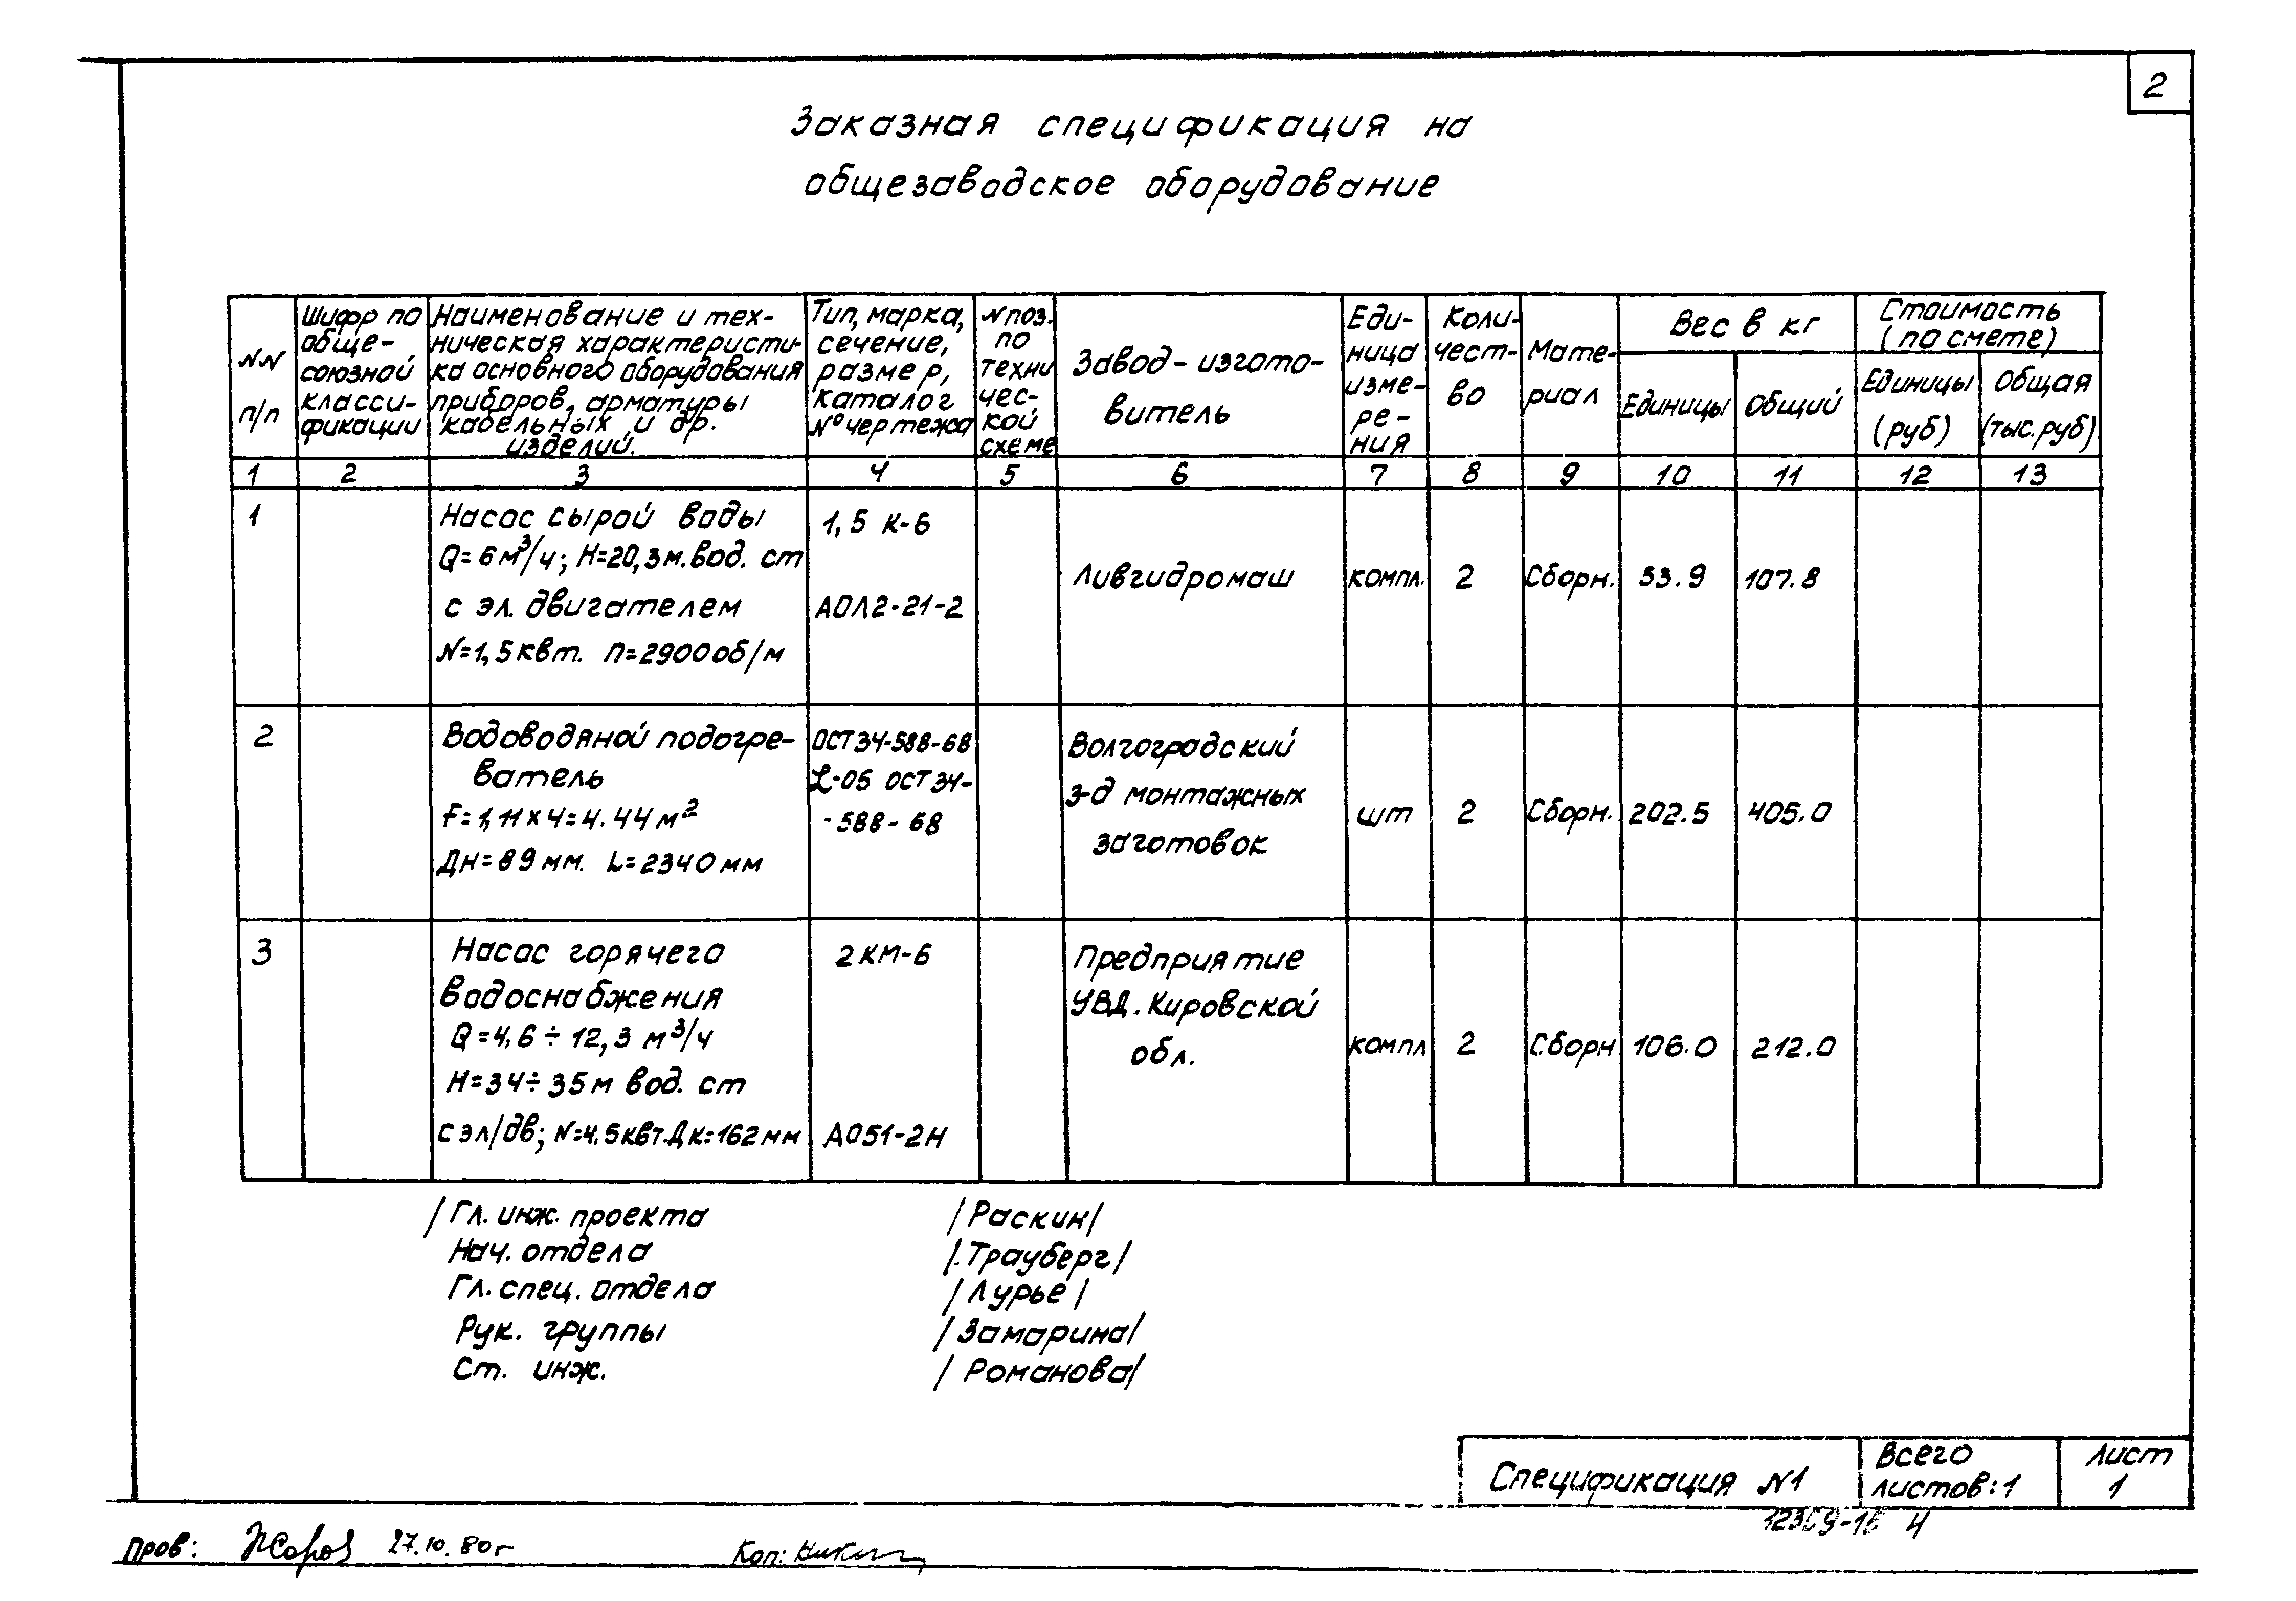 2
Заказная спецификация на
общезаводское оборудование
NN п/п
Шифр по обще-
союзной
класси-
фикации
Наименование и тех-
ническая характеристи-
ка основного оборудования
приборов, арматуры
кабельных и др.
изделий.
Тип, марка,
сечение,
размер,
каталог
№ чертежа
N поз.
по
техни
чес-
кой
схеме
Завод-изгото-
витель
Еди-
ница
изме-
ре-
ния
Коли-
чест-
во
Мате-
риал
Вес в кг
Единицы
Общий
Стоимость
(по смете)
Единицы
(руб)
Общая
(тыс. руб)
1 2 3 4 5 6 7 8 9 10 11 12 13
1
Насос сырой воды
Q=6м³/ч; Н=20,3м.вод. ст
с эл. двигателем
N=1,5квт. п=2900об/м
1,5 К-6
АОЛ2-21-2
Ливгидромаш
компл.
2
Сборн.
53.9
107.8
2
Водоводяной подогре-
ватель
F=1,11×4=4.44м²
Дн=89мм. L=2340мм
ОСТ34-588-68
L-05 ОСТ34-
-588-68
Волгоградский
з-д монтажных
заготовок
шт
2
Сборн.
202.5
405.0
3
Насос горячего
водоснабжения
Q=4,6÷12,3 м³/ч
Н=34÷35м вод. ст
с эл/дв; N=4.5квт.Дк=162мм
2КМ-6
АО51-2Н
Предприятие
УВД. Кировской
обл.
компл
2
Сборн
106.0
212.0
/Гл. инж. проекта /Раскин/
Нач. отдела /.Трауберг/
Гл. спец. отдела /Лурье/
Рук. группы /Замарина/
Ст. инж. /Романова/
Спецификация N1
Всего
листов:1
Лист
1
4
Пров: 27.10.80г
Коп: